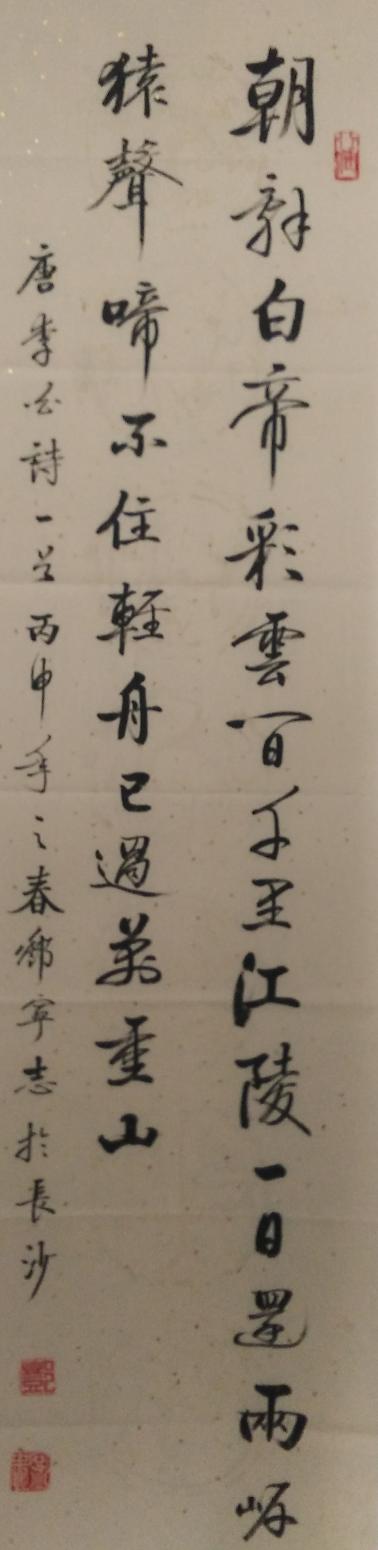 朝辭白帝彩雲間千里江陵一日還兩岸
猿聲啼不住輕舟已過萬重山
唐李白詩一首丙申年之春寧志於長沙